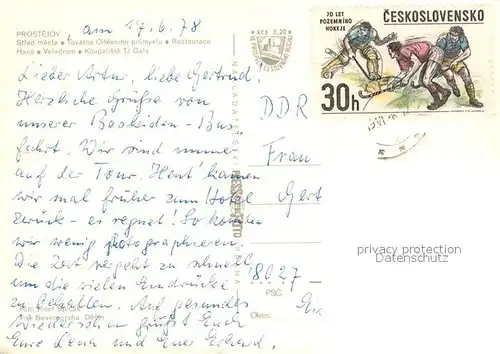 am 17.6.78
PROSTĚJOV
Střed města • Továrna Oděvního průmyslu • Restaurace
Haná • Velodrom • Koupaliště TJ Gala
Kčs 0,20
70 LET
POZEMNÍHO
HOKEJE
ČESKOSLOVENSKO
30h
Lieber Artur, liebe Gertrud,
Herzliche Grüße von
unserer Beskiden-Bus
fahrt. Wir sind immer
auf der Tour. Heut' kamen
wir mal früher zum Hotel
zurück - es regnet! So konnten
wir wenig photographieren.
Die Zeit vergeht zu schnell
um die vielen Eindrücke
zu behalten. Auf gesundes
Wiedersehen grüßt Euch
Eure Lena und Euer Erhard.
DDR
Frau
Gert
8027
PSČ
Okres
NAKLADATELSTVÍ
PRAHA
Foto Josef
Tisk Severografia, Děčín
privacy protection
Datenschutz